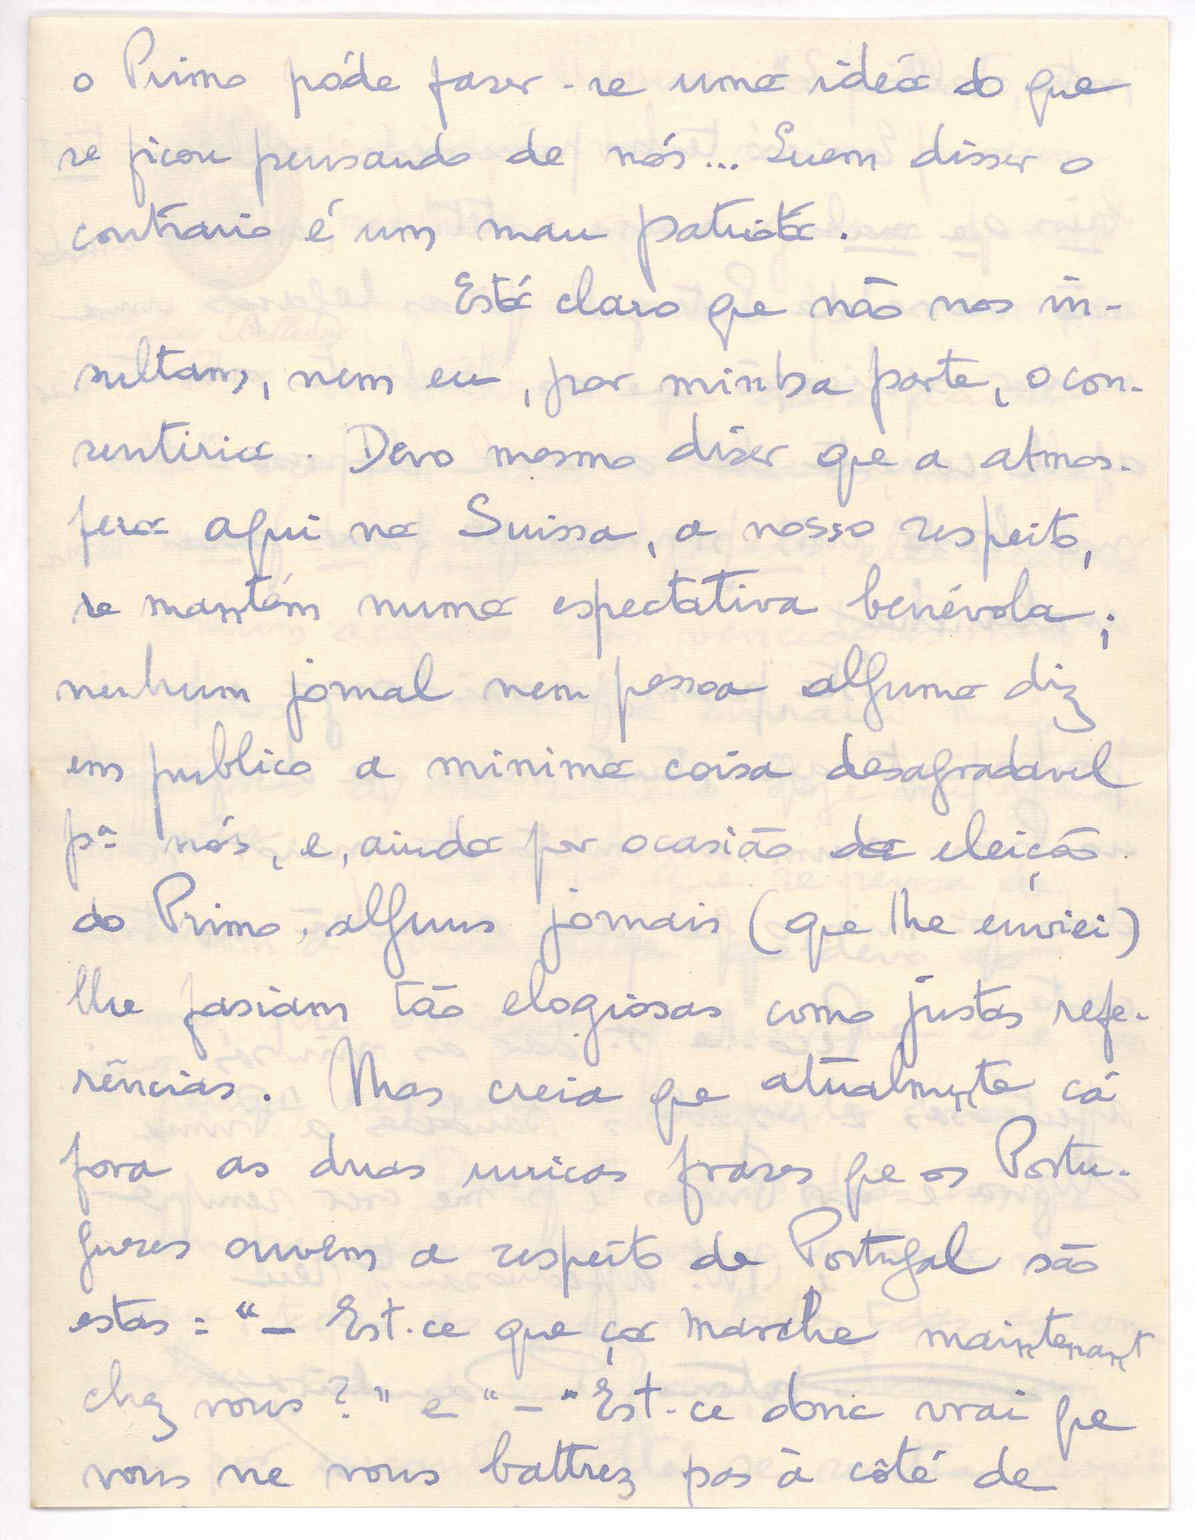 o Primo póde faser-se uma idéa do que
se ficou pensando de nós... Quem disser o
contrario é um mau patriota.
Está claro que não nos in-
sultam, nem eu, por minha parte, o con-
sentiria. Devo mesmo diser que a atmos-
fera aqui na Suissa, a nosso respeito,
se mantém numa espectativa benévola;
nenhum jornal nem pessoa alguma diz
em publico a minima coisa desagradavel
pª nós, e, ainda por ocasião da eleição
do Primo, alguns jornais (que lhe enviei)
lhe fasiam tão elogiosas como justas refe-
rências. Mas creia que atualmente cá
fora as duas unicas frases que os Portu-
gueses ouvem a respeito de Portugal são
estas: "— Est-ce que ça marche maintenant
chez vous?" e "— "Est-ce donc vrai que
vous ne vous battrez pas à côté de